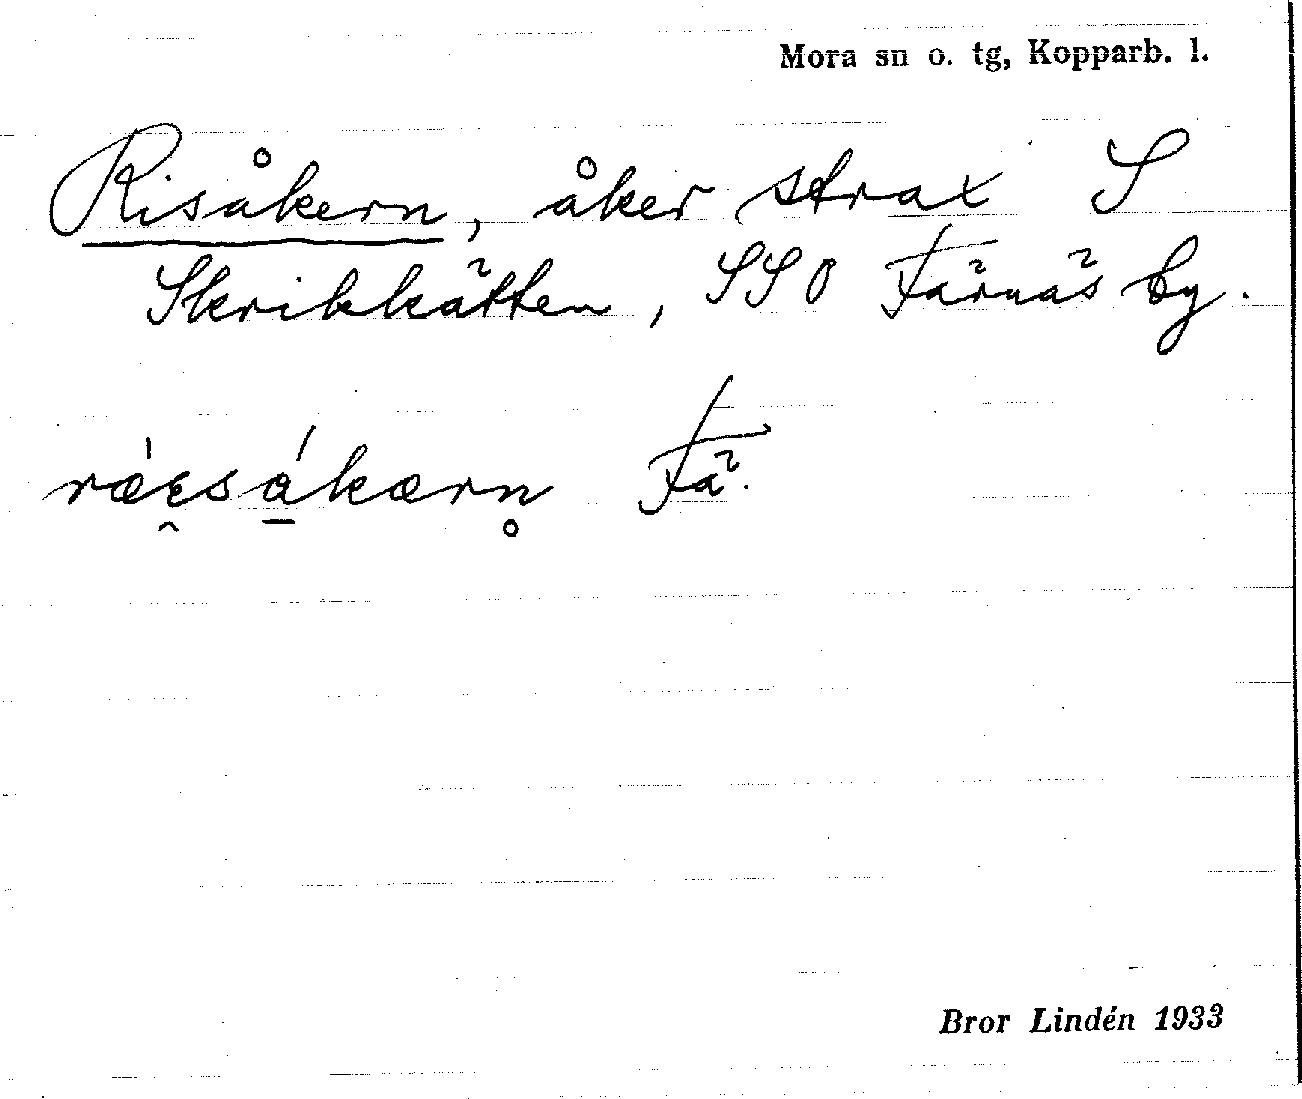 Mora sn o. tg, Kopparb. l.
Risåkern, åker strax S
Skrikkätten, SSO Färnäs by.
rǽɛsákærn Fä.
Bror Lindén 1933